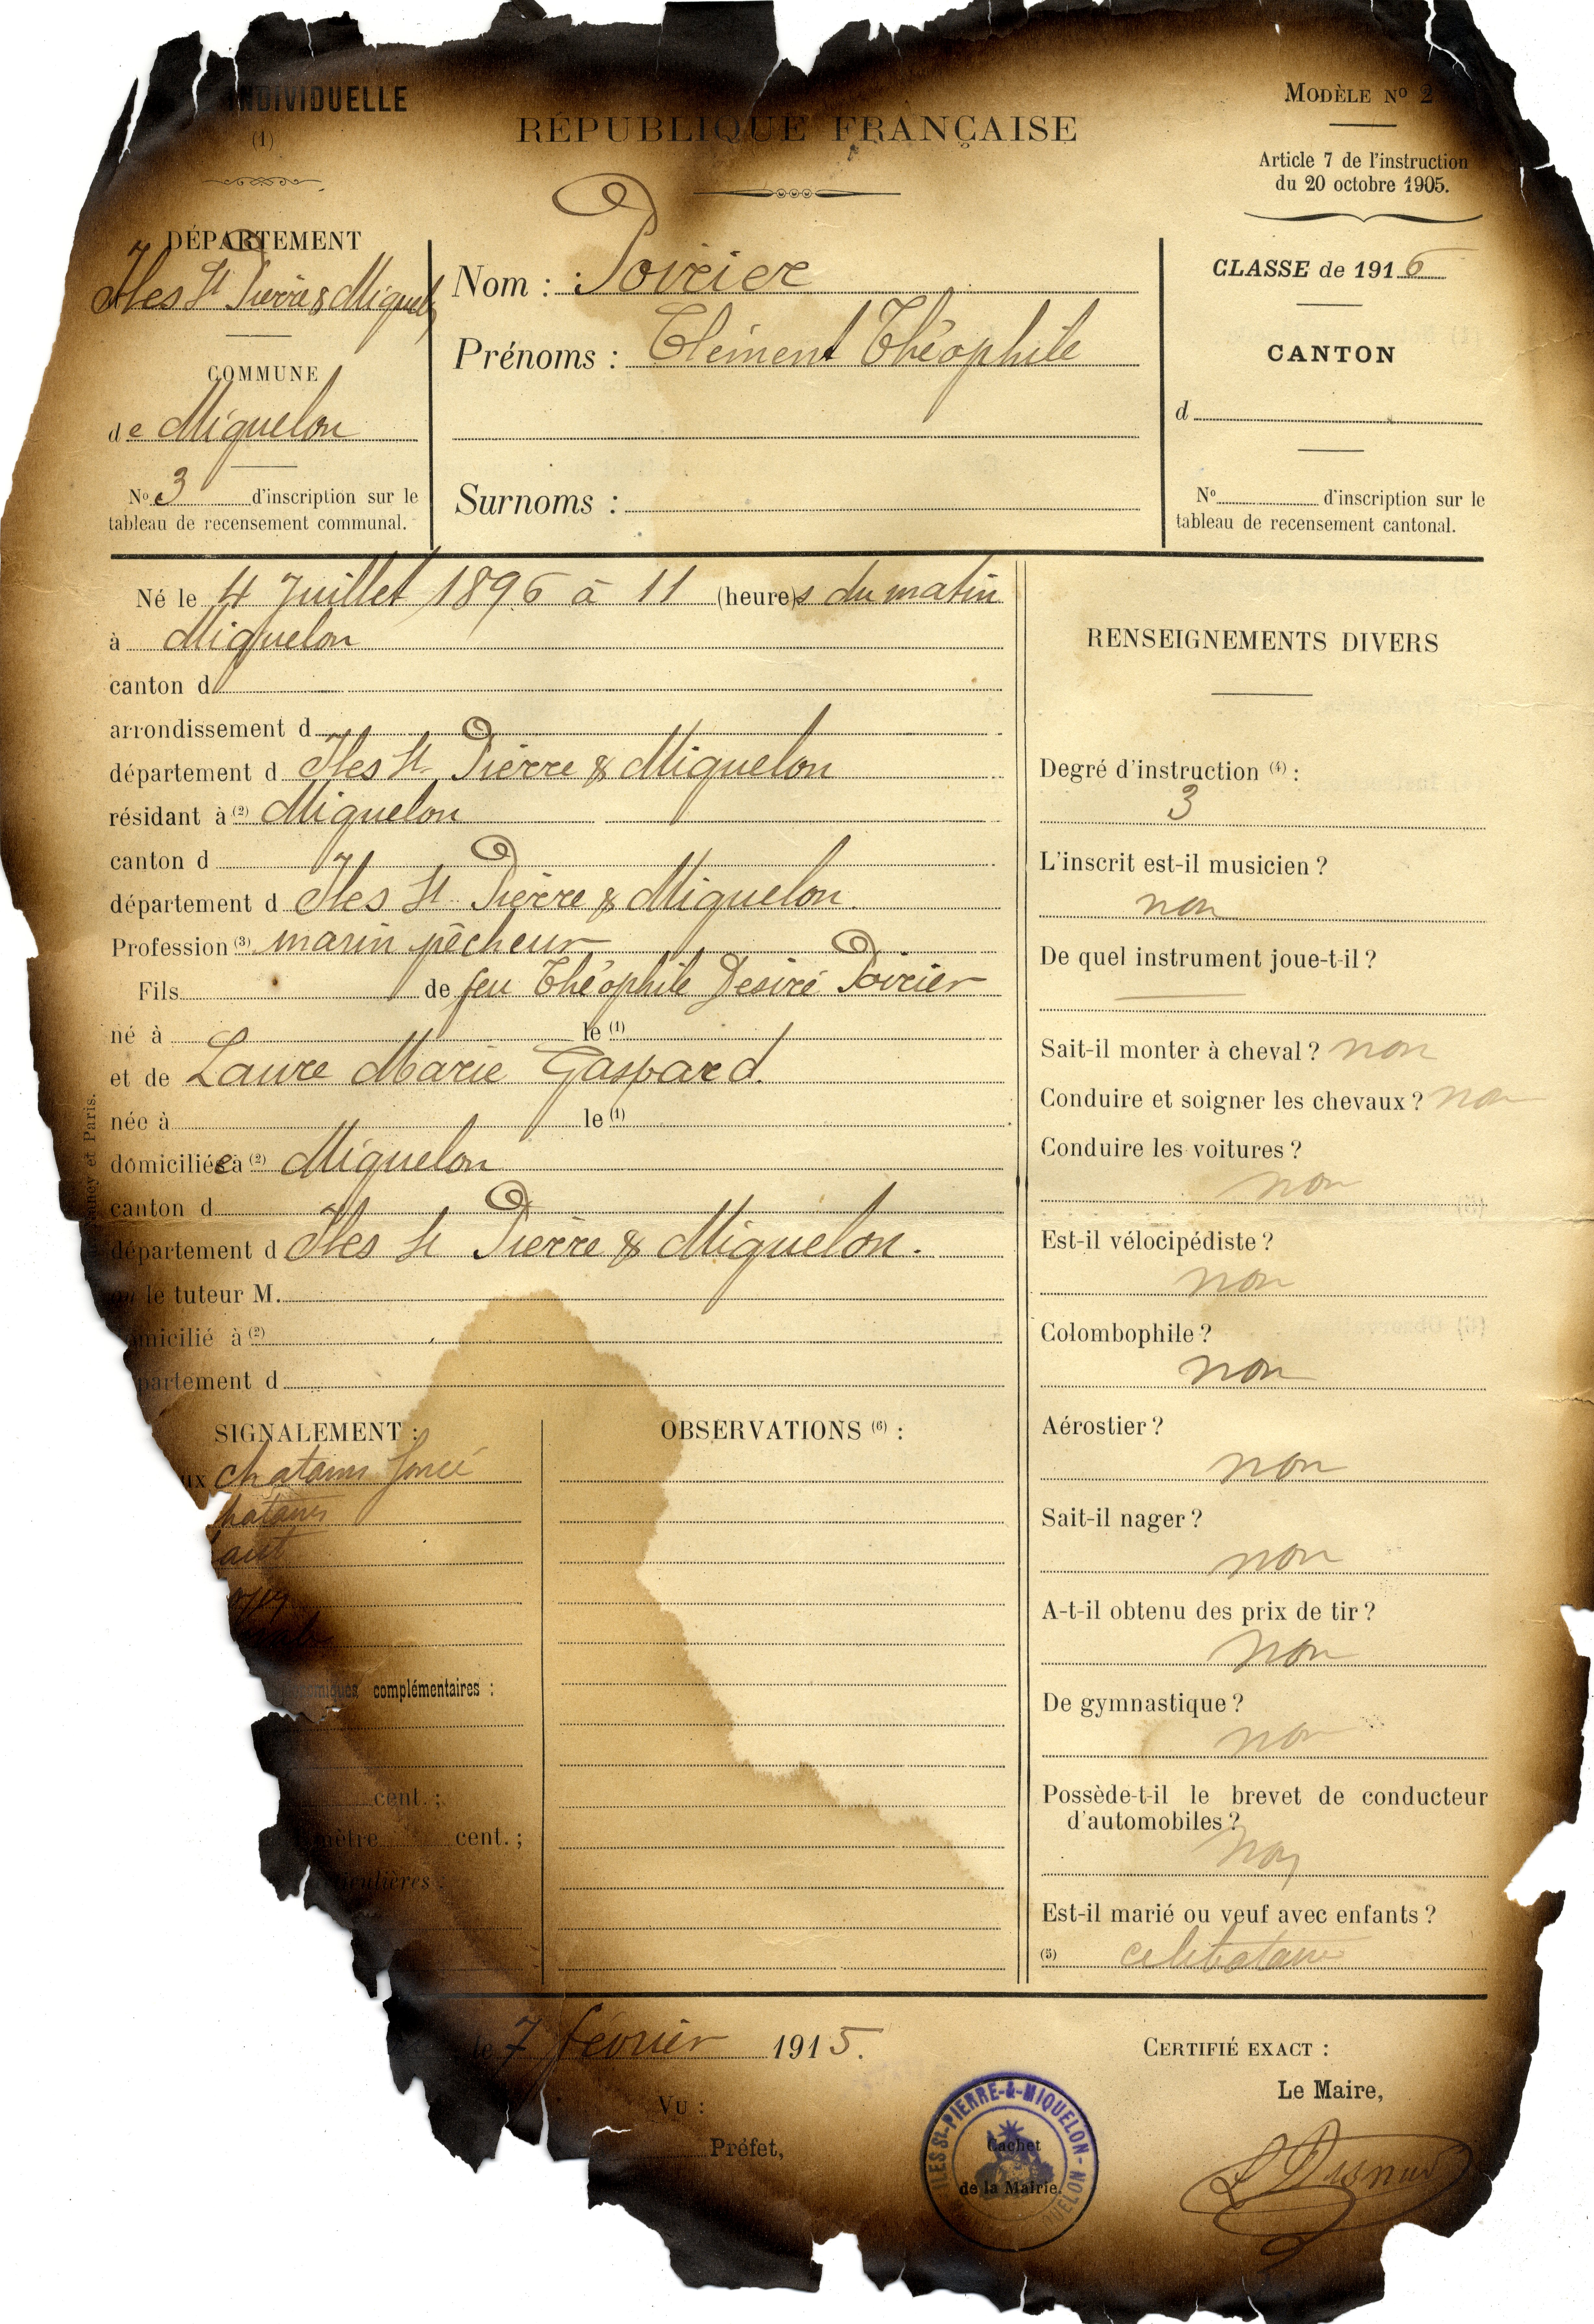 INDIVIDUELLE
(1)
RÉPUBLIQUE FRANÇAISE
MODÈLE Nº 2
Article 7 de l'instruction
du 20 octobre 1905.
DÉPARTEMENT
Iles St Pierre & Miquelon
COMMUNE
de Miquelon
Nº 3 d'inscription sur le
tableau de recensement communal.
Nom : Poirier
Prénoms : Clément Théophile
Surnoms :
CLASSE de 1916
CANTON
d
Nº d'inscription sur le
tableau de recensement cantonal.
Né le 4 Juillet 1896 à 11 (heure)s du matin
à Miquelon
canton d
arrondissement d
département d Iles St Pierre & Miquelon
résidant à (2) Miquelon
canton d
département d Iles St Pierre & Miquelon.
Profession (3) marin pêcheur
Fils de feu Théophile Desiré Poirier
né à le (1)
et de Laure Marie Gaspard.
née à le (1)
domiciliée à (2) Miquelon
canton d
département d Iles St Pierre & Miquelon.
ou le tuteur M.
domicilié à (2)
partement d
SIGNALEMENT :
ux chatains foncé
hatains
aut
complémentaires :
cent. ;
mètre cent. ;
iculières :
OBSERVATIONS (6) :
RENSEIGNEMENTS DIVERS
Degré d'instruction (4) :
3
L'inscrit est-il musicien ?
non
De quel instrument joue-t-il ?
Sait-il monter à cheval ? non
Conduire et soigner les chevaux ? non
Conduire les voitures ?
non
Est-il vélocipédiste ?
non
Colombophile ?
non
Aérostier ?
non
Sait-il nager ?
non
A-t-il obtenu des prix de tir ?
non
De gymnastique ?
non
Possède-t-il le brevet de conducteur
d'automobiles ?
non
Est-il marié ou veuf avec enfants ?
(5) celibataire
le 7 février 1915.
VU :
Préfet,
ILES St-PIERRE-&-MIQUELON
Cachet
de la Mairie.
CERTIFIÉ EXACT :
Le Maire,